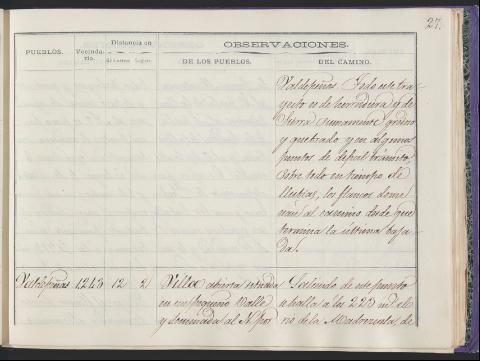 27.
PUEBLOS.
Vecinda-
rio.
Distancia en
Kilómets
Leguas.
OBSERVACIONES.
DE LOS PUEBLOS.
DEL CAMINO.
Valdepeñas. Todo este tra-
yecto es de herradura y de
Sierra sumamente
y quebrado y en algunos
puntos de dificil tránsito,
sobre todo en tiempo de
lluvias, los flancos domi-
nan al camino desde que
termina la última baja-
da.
Valdepeñas 1243 12 2
Villa abierta situada
en un pequeño Valle
y dominada al N. por
Saliendo de este puesto
se halla a los 220 mt. el
rio de la de